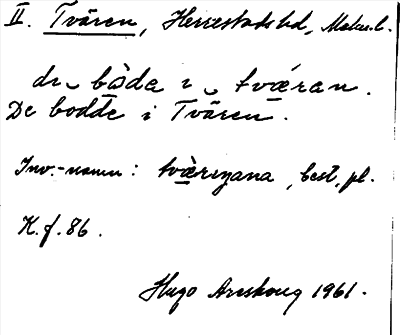 II. Tvären, Herrestads hd, Malm.l.
di bàda i tvǽran.
De bodde i Tvären.
Inv.-namn: tvæ̀rin̥ana, best. pl.
K.f. 86.
Hugo Areskoug 1961.